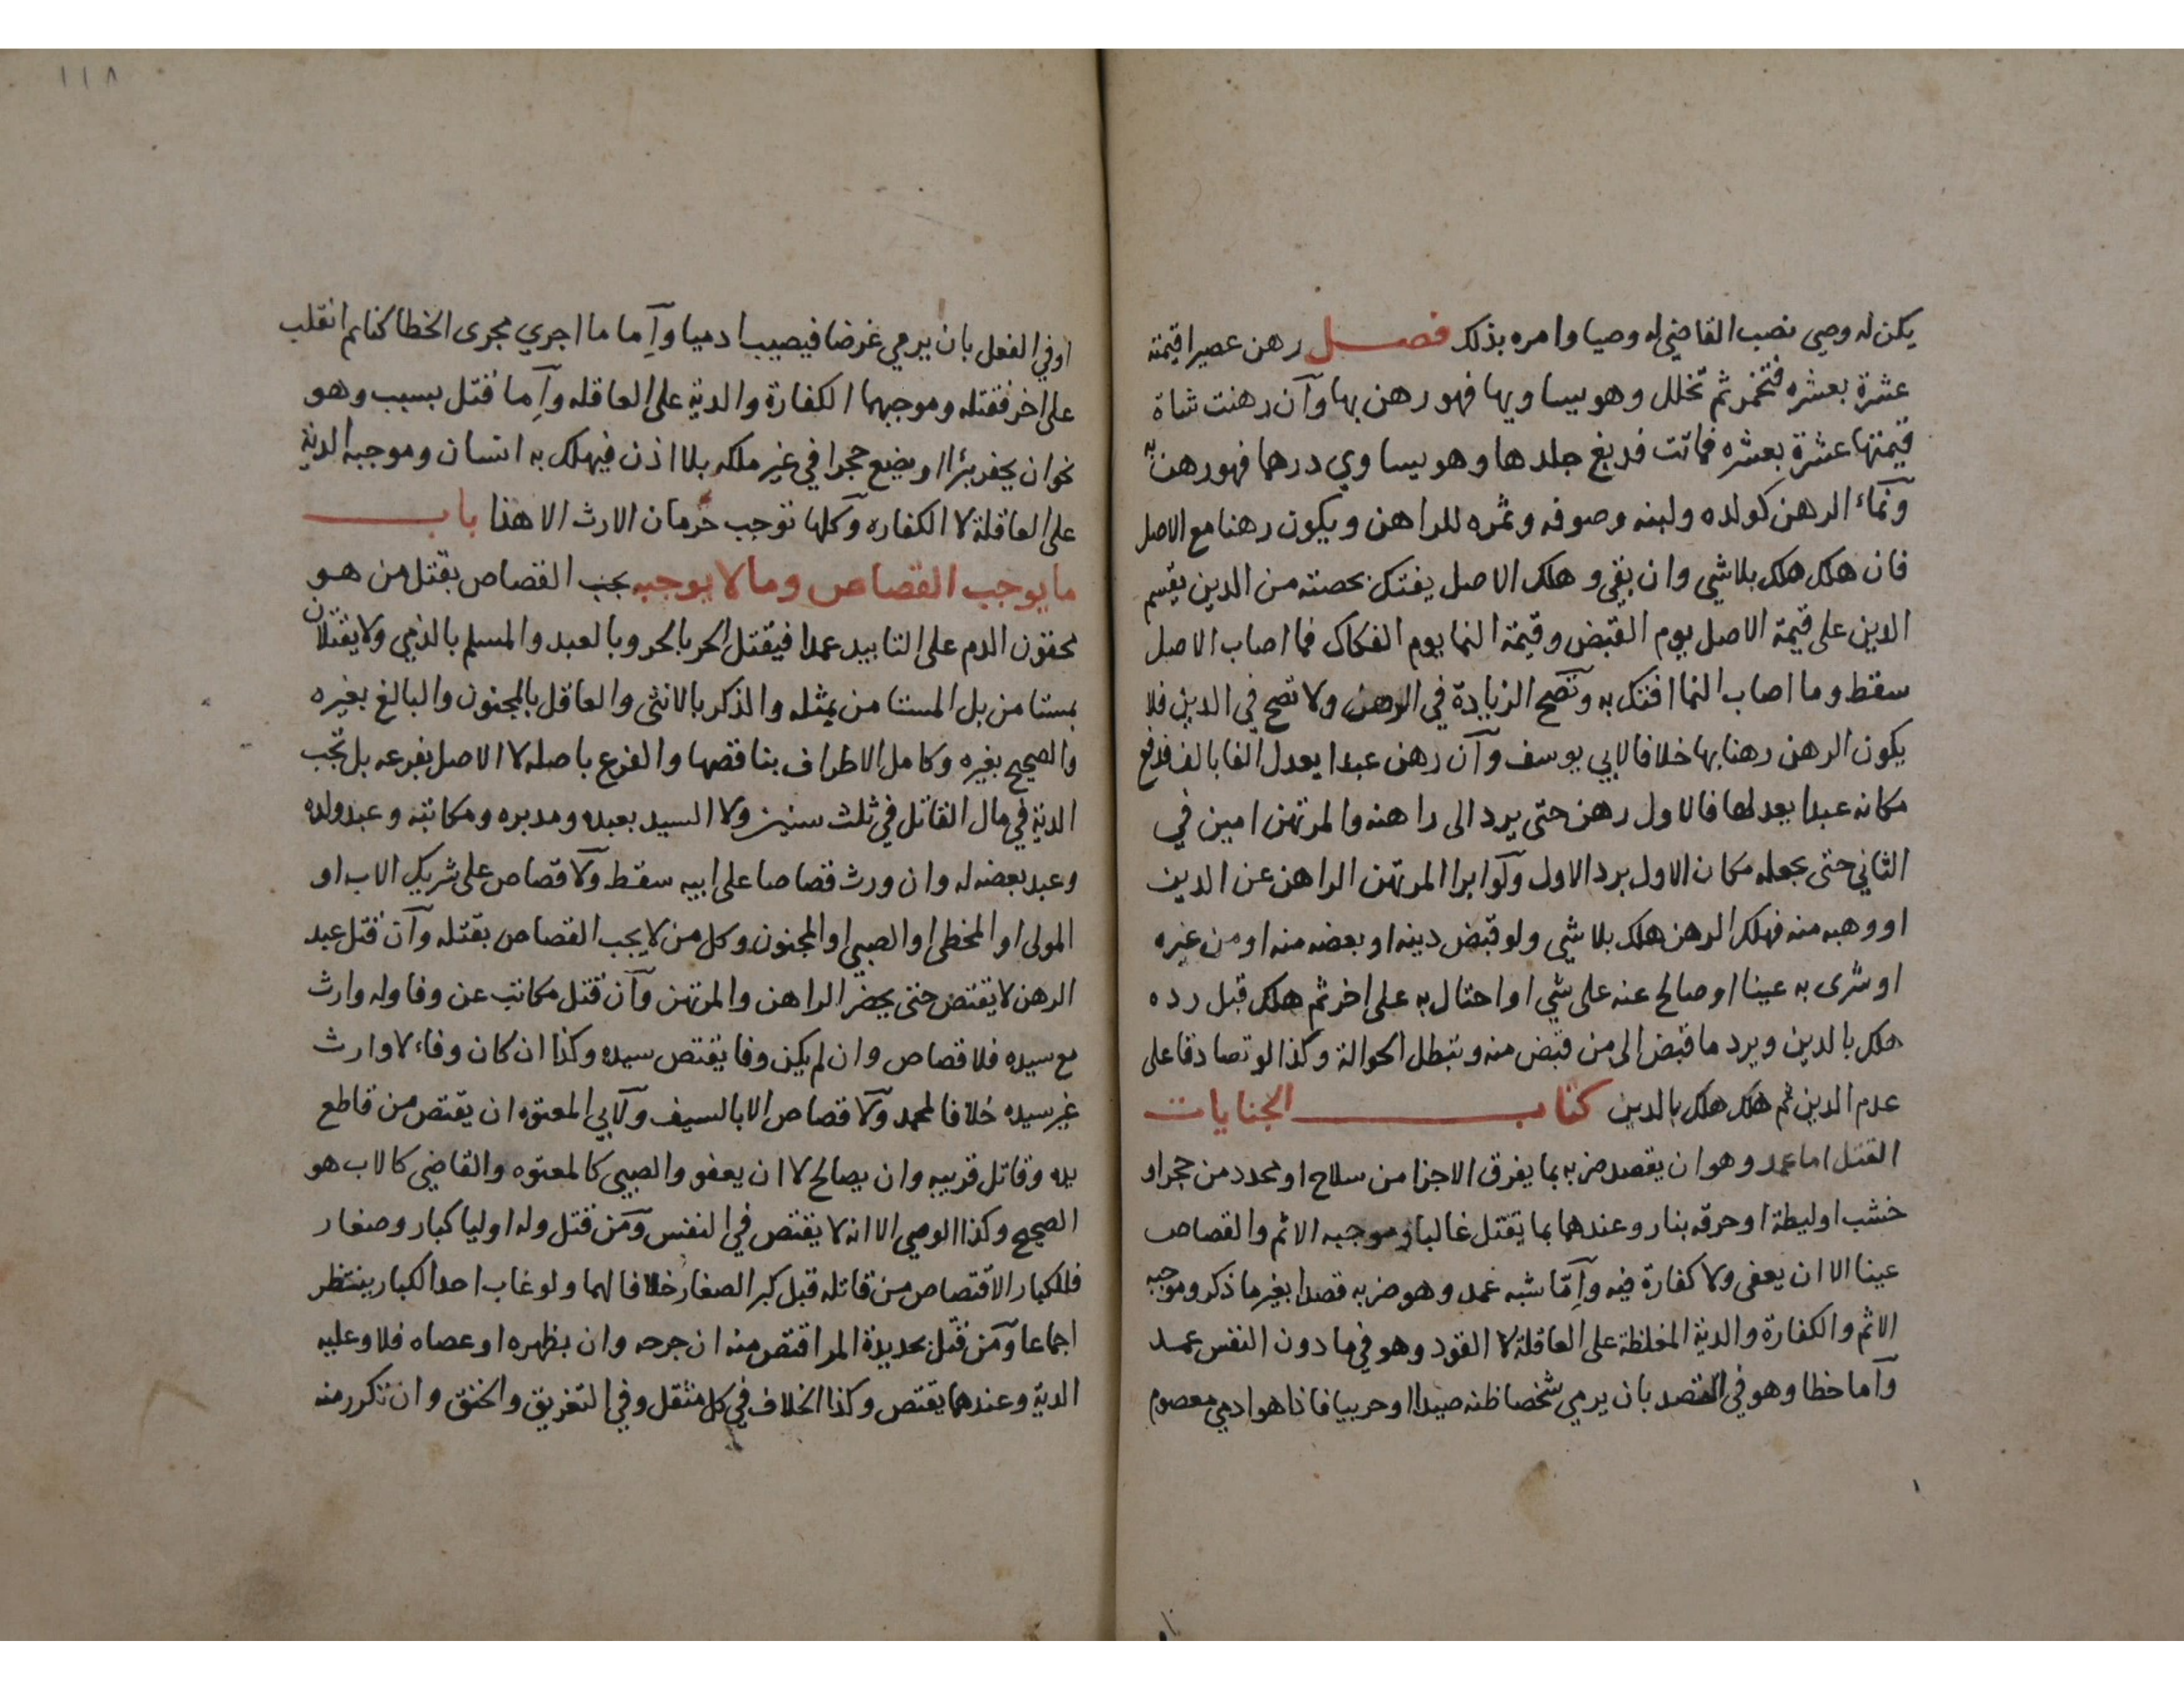 يكن له وصي نصب القاضي له وصيا وامره بذلك فصل رهن عصيرا قيمته
عشرة بعشره فتخمر ثم تخلل وهو يساويها فهو رهن بها وان رهنت شاة
قيمتها عشرة بعشره فماتت فدبغ جلدها وهو يساوي درهما فهو رهن به
ونماء الرهن كولده ولبنه وصوفه وثمره للراهن ويكون رهنا مع الاصل
فان هلك هلك بلا شي وان بقي وهلك الاصل يفتك بحصته من الدين يقسم
الدين على قيمة الاصل يوم القبض وقيمة النما يوم الفكاك فما اصاب الاصل
سقط وما اصاب النما افتك به وتصح الزيادة في الرهن ولا تصح في الدين فلا
يكون الرهن رهنا بها خلافا لابي يوسف وان رهن عبدا يعدل الفا بالف فدفع
مكانه عبدا يعدلها فالاول رهن حتى يرد الى راهنه والمرتهن امين في
الثاني حتى يجعله مكان الاول برد الاول ولو ابرا المرتهن الراهن عن الدين
او وهبه منه فهلك الرهن هلك بلا شي ولو قبض دينه او بعضه منه او من غيره
او شرى به عينا او صالح عنه على شي او احتال به على اخر ثم هلك قبل رده
هلك بالدين ويرد ما قبض الى من قبض منه وتبطل الحوالة وكذا لو تصادقا على
عدم الدين ثم هلك هلك بالدين كتاب الجنايات
القتل اما عمد وهو ان يقصد ضربه بما يفرق الاجزا من سلاح او محدد من حجر او
خشب او ليطة او حرقه بنار وعندهما بما يقتل غالبا وموجبه الاثم والقصاص
عينا الا ان يعفى ولا كفارة فيه واما شبه عمد وهو ضربه قصدا بغير ما ذكر وموجبه
الاثم والكفارة والدية المغلظة على العاقلة لا القود وهو في ما دون النفس عمد
واما خطا وهو في القصد بان يرمي شخصا ظنه صيدا او حربيا فاذا هو ادمي معصوم
١١٨
او في الفعل بان يرمي غرضا فيصيب ادميا واما ما اجري مجرى الخطا كنايم انقلب
على اخر فقتله وموجبهما الكفارة والدية على العاقله واما قتل بسبب وهو
نحو ان يحفر بئرا او يضع حجرا في غير ملكه بلا اذن فيهلك به انسان وموجبه الدية
على العاقلة لا الكفاره وكلها توجب حرمان الارث الا هذا باب
ما يوجب القصاص وما لا يوجبه يجب القصاص بقتل من هو
محقون الدم على التابيد عمدا فيقتل الحر بالحر وبالعبد والمسلم بالذمي ولا يقتلان
بمستامن بل المستامن بمثله والذكر بالانثى والعاقل بالمجنون والبالغ بغيره
والصحيح بغيره وكامل الاطراف بناقصها والفرع باصله لا الاصل بفرعه بل تجب
الدية في مال القاتل في ثلث سنين ولا السيد بعبده ومدبره ومكاتبه وعبد ولده
وعبد بعضه له وان ورث قصاصا على ابيه سقط ولا قصاص على شريك الاب او
المولى او المخطي او الصبي او المجنون وكل من لا يجب القصاص بقتله وان قتل عبد
الرهن لا يقتص حتى يحضر الراهن والمرتهن وان قتل مكاتب عن وفا وله وارث
مع سيده فلا قصاص وان لم يكن وفا يقتص سيده وكذا ان كان وفاء لا وارث
غير سيده خلافا لمحمد ولا قصاص الا بالسيف ولابي المعتوه ان يقتص من قاطع
يده وقاتل قريبه وان يصالح لا ان يعفو والصبي كالمعتوه والقاضي كالاب هو
الصحيح وكذا الوصي الا انه لا يقتص في النفس ومن قتل وله اوليا كبار وصغار
فللكبار الاقتصاص من قاتله قبل كبر الصغار خلافا لهما ولو غاب احد الكبار ينتظر
اجماعا ومن قتل بحديدة المر اقتص منه ان جرحه وان بظهره او عصاه فلا وعليه
الدية وعندهما يقتص وكذا الخلاف في كل مثقل وفي التغريق والخنق وان تكرر منه